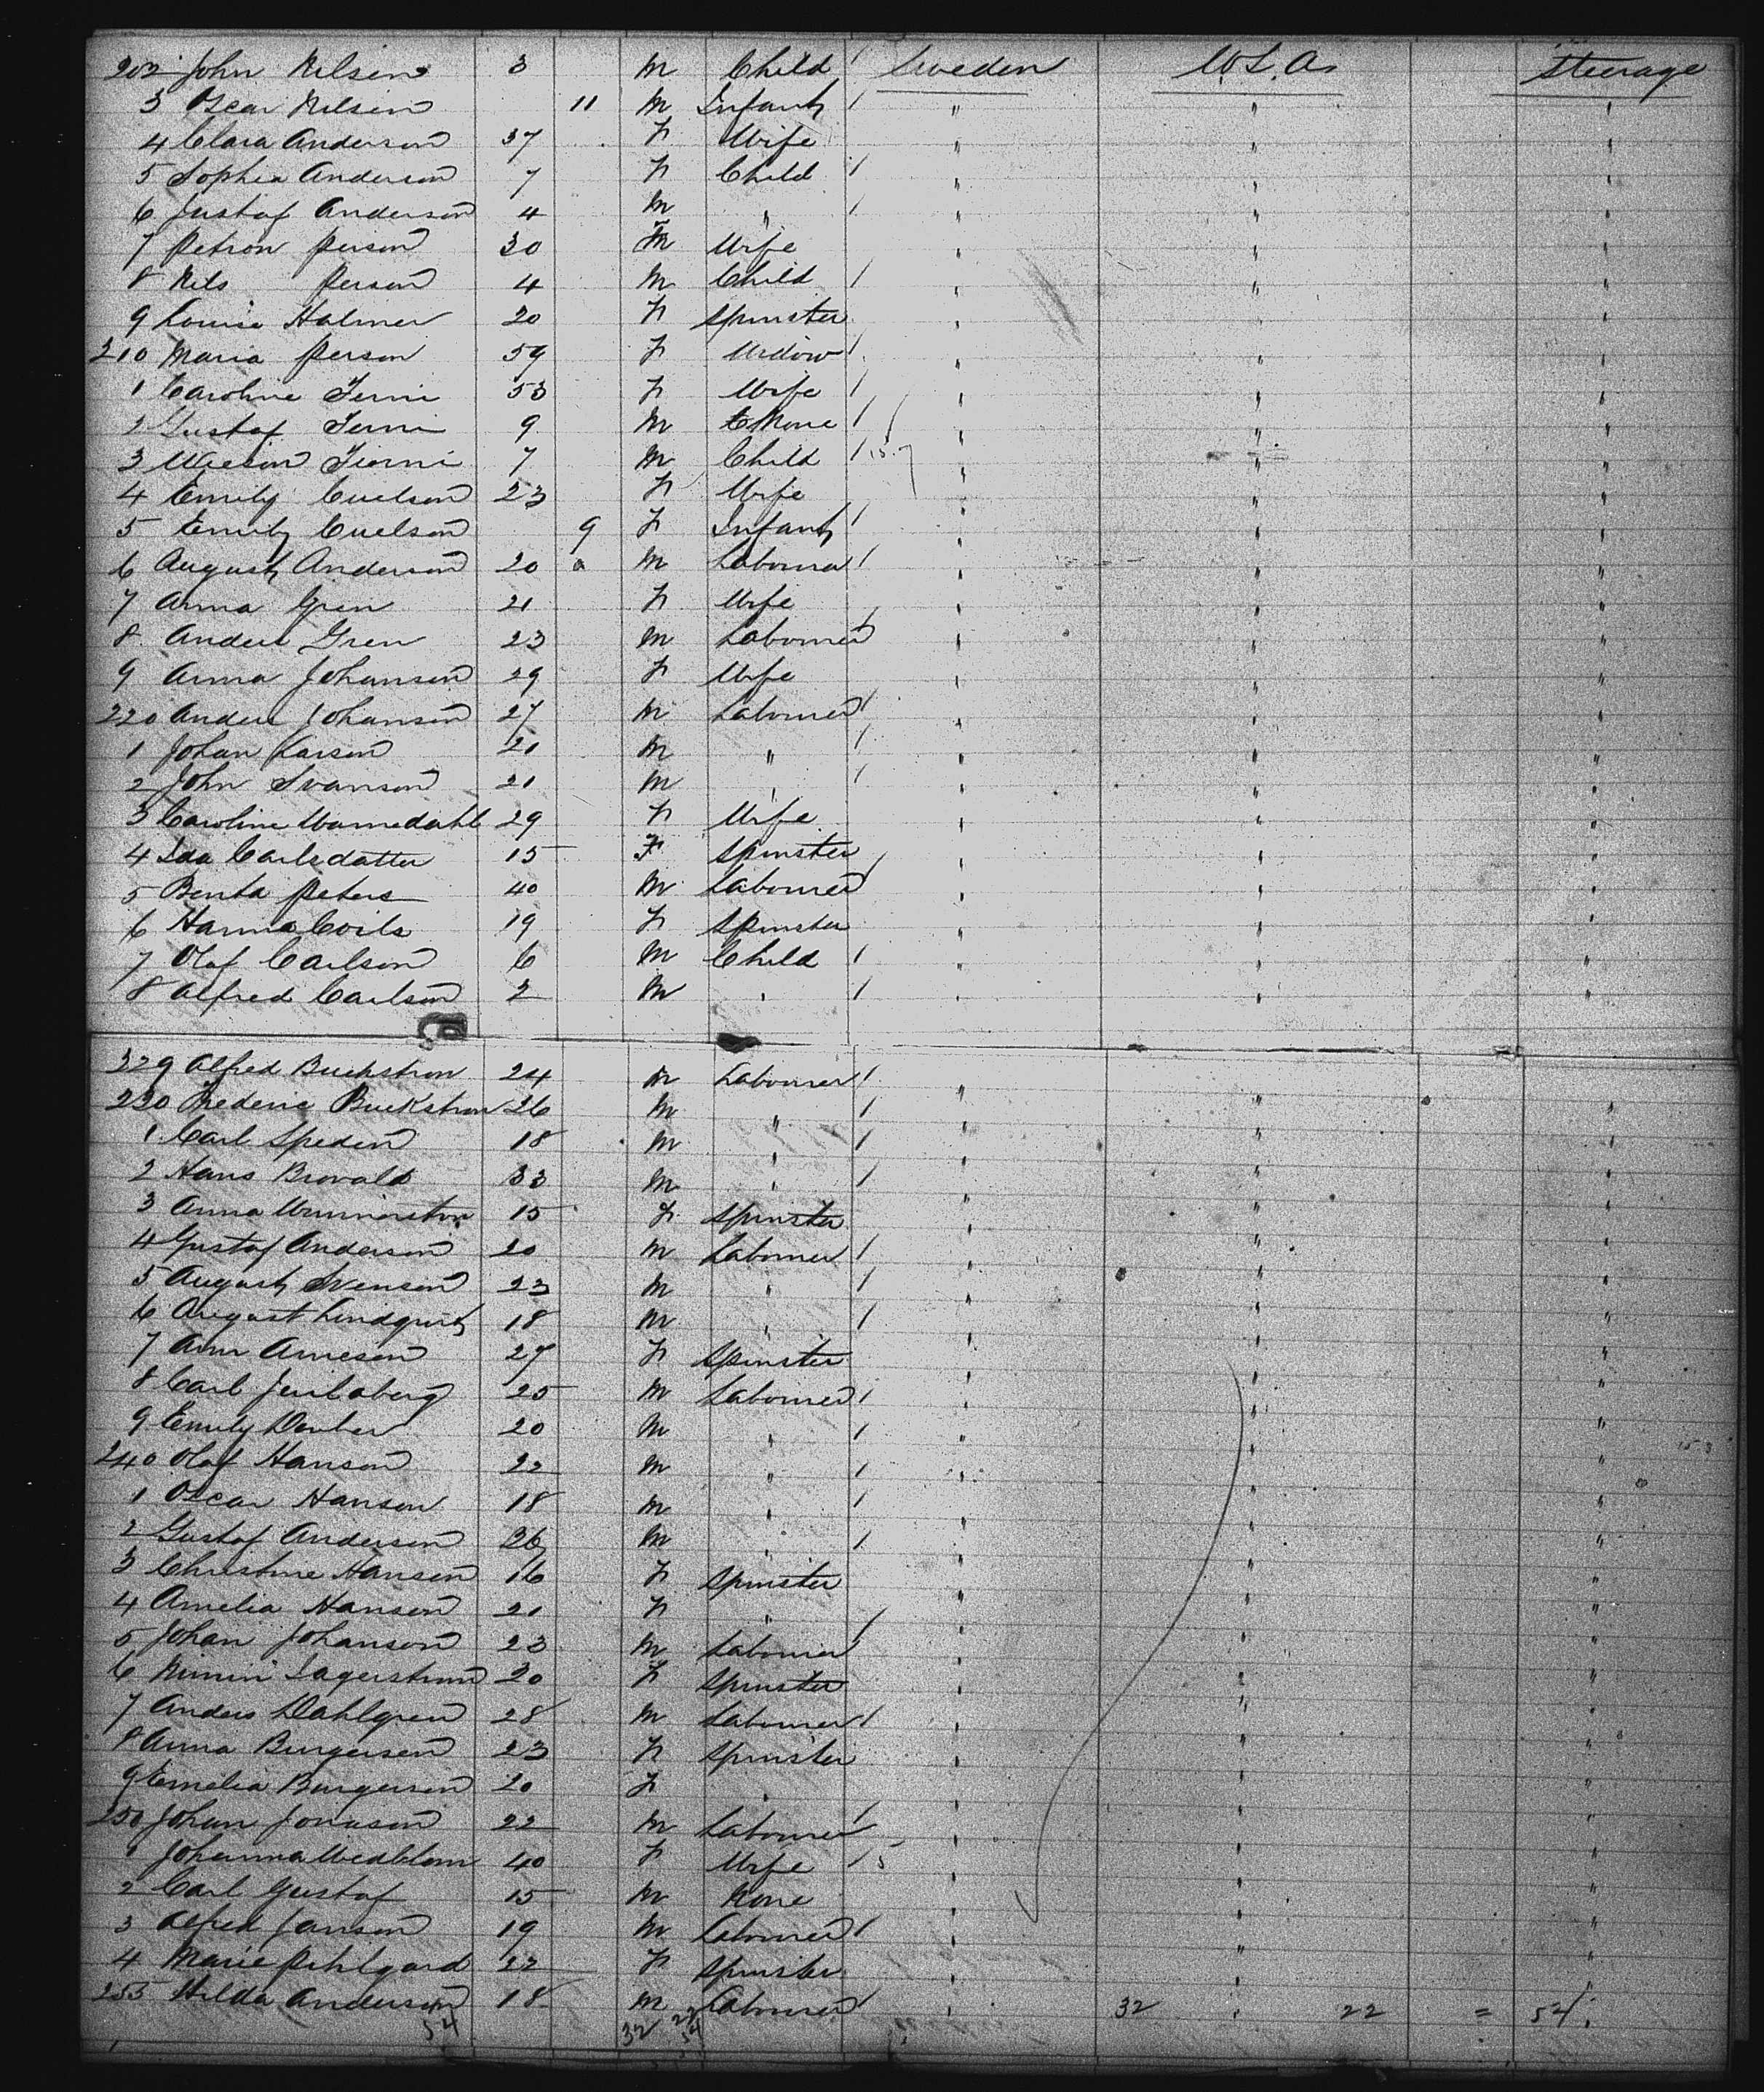 202 John Nilson 3 M Child / Sweden U.S.A. Steerage
3 Oscar Nilson 11 M Infant / " " "
4 Clara Anderson 37 F Wife " " "
5 Sophia Anderson 7 F Child / " " "
6 Gustaf Anderson 4 M " / " " "
7 Petron Person 30 F Wife " " "
8 Nils Person 4 M Child / " " "
9 Louise Halmer 20 F Spinster " " "
210 Maria Person 59 F Widow / " " "
1 Caroline Ferni 53 F Wife / " " "
2 Gustaf Ferni 9 M None / " " "
3 Ferni 7 M Child / " " "
4 Emily Cuelson 23 F Wife " " "
5 Emily Cuelson 9 F Infant / " " "
6 August Anderson 20 M Labourer / " " "
7 Anna Gren 21 F Wife " " "
8 Anders Gren 23 M Labourer / " " "
9 Anna Johanson 29 F Wife " " "
220 Anders Johanson 27 M Labourer / " " "
1 Johan Larson 21 M " / " " "
2 John Svanson 21 M " / " " "
3 Caroline Warnedahl 29 F Wife " " "
4 Ida Carlsdatter 15 F Spinster " " "
5 Benta Peters 40 M Labourer / " " "
6 Hanna Coils 19 F Spinster " " "
7 Olof Carlson 6 M Child / " " "
8 Alfred Carlson 2 M " / " " "
329 Alfred Buckstron 24 M Labourer / " " "
230 Frederic Buckstron 26 M " / " " "
1 Carl Speden 18 M " / " " "
2 Hans Brovald 33 M " / " " "
3 Anna 15 F Spinster " " "
4 Gustaf Anderson 20 M Labourer / " " "
5 August Svenson 23 M " / " " "
6 August Lindquist 18 M " / " " "
7 Ann Arneson 27 F Spinster " " "
8 Carl 25 M Labourer / " " "
9 Emily 20 M " / " " "
240 Olof Hanson 22 M " / " " "
1 Oscar Hanson 18 M " / " " "
2 Gustaf Anderson 26 M " / " " "
3 Christine Hanson 16 F Spinster " " "
4 Amelia Hanson 21 F " " " "
5 Johan Johanson 23 M Labourer / " " "
6 Lagerstrom 20 F Spinster " " "
7 Anders Dahlgren 28 M Labourer / " " "
8 Anna Burgerson 23 F Spinster " " "
9 Emelia Burgerson 20 F " " " "
250 Johan Jonason 22 M Labourer / " " "
1 Johanna Wedblom 40 F Wife / " " "
2 Carl Gustaf 15 M None " " "
3 Alfred Janson 19 M Labourer / " " "
4 Marie Pihlgard 22 F Spinster " " "
255 Hilda Anderson 18 M Labourer / " 32 " 22 = 54
54 32 22 54